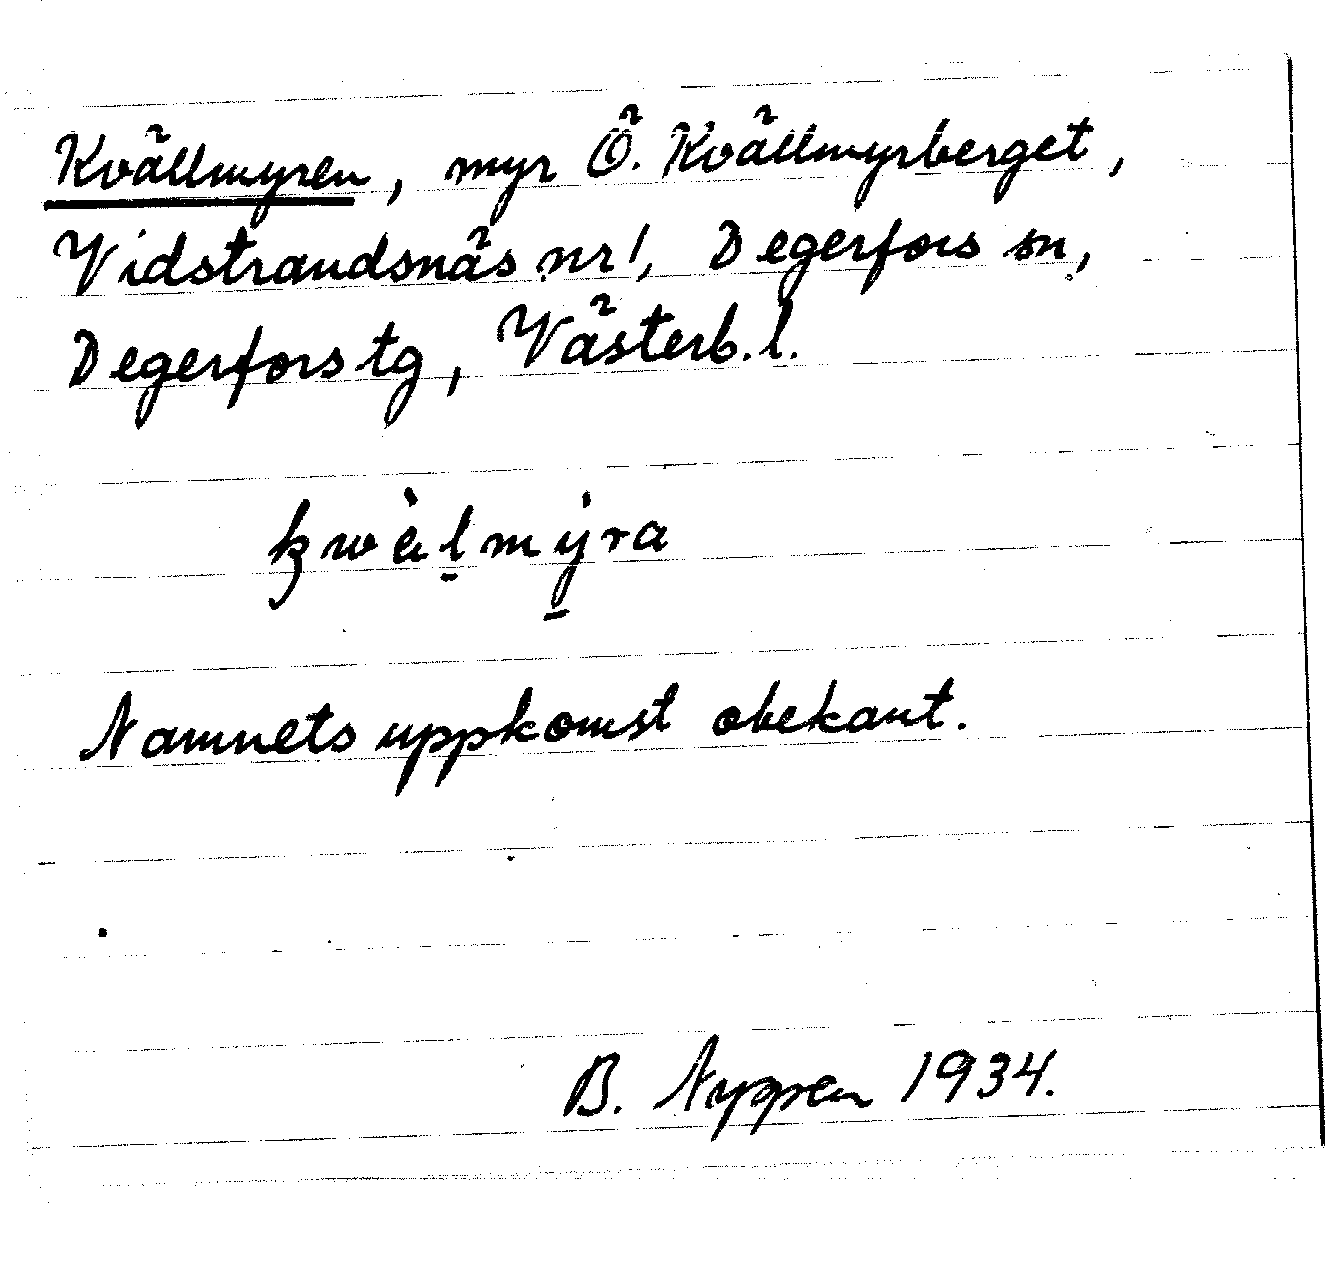 Kvällmyren, myr Ö. Kvällmyrberget,
Vidstrandsnäs nr 1, Degerfors sn,
Degerfors tg, Västerb. l.
kwàl̠mý̠ra
Namnets uppkomst obekant.
B. Nyppen 1934.